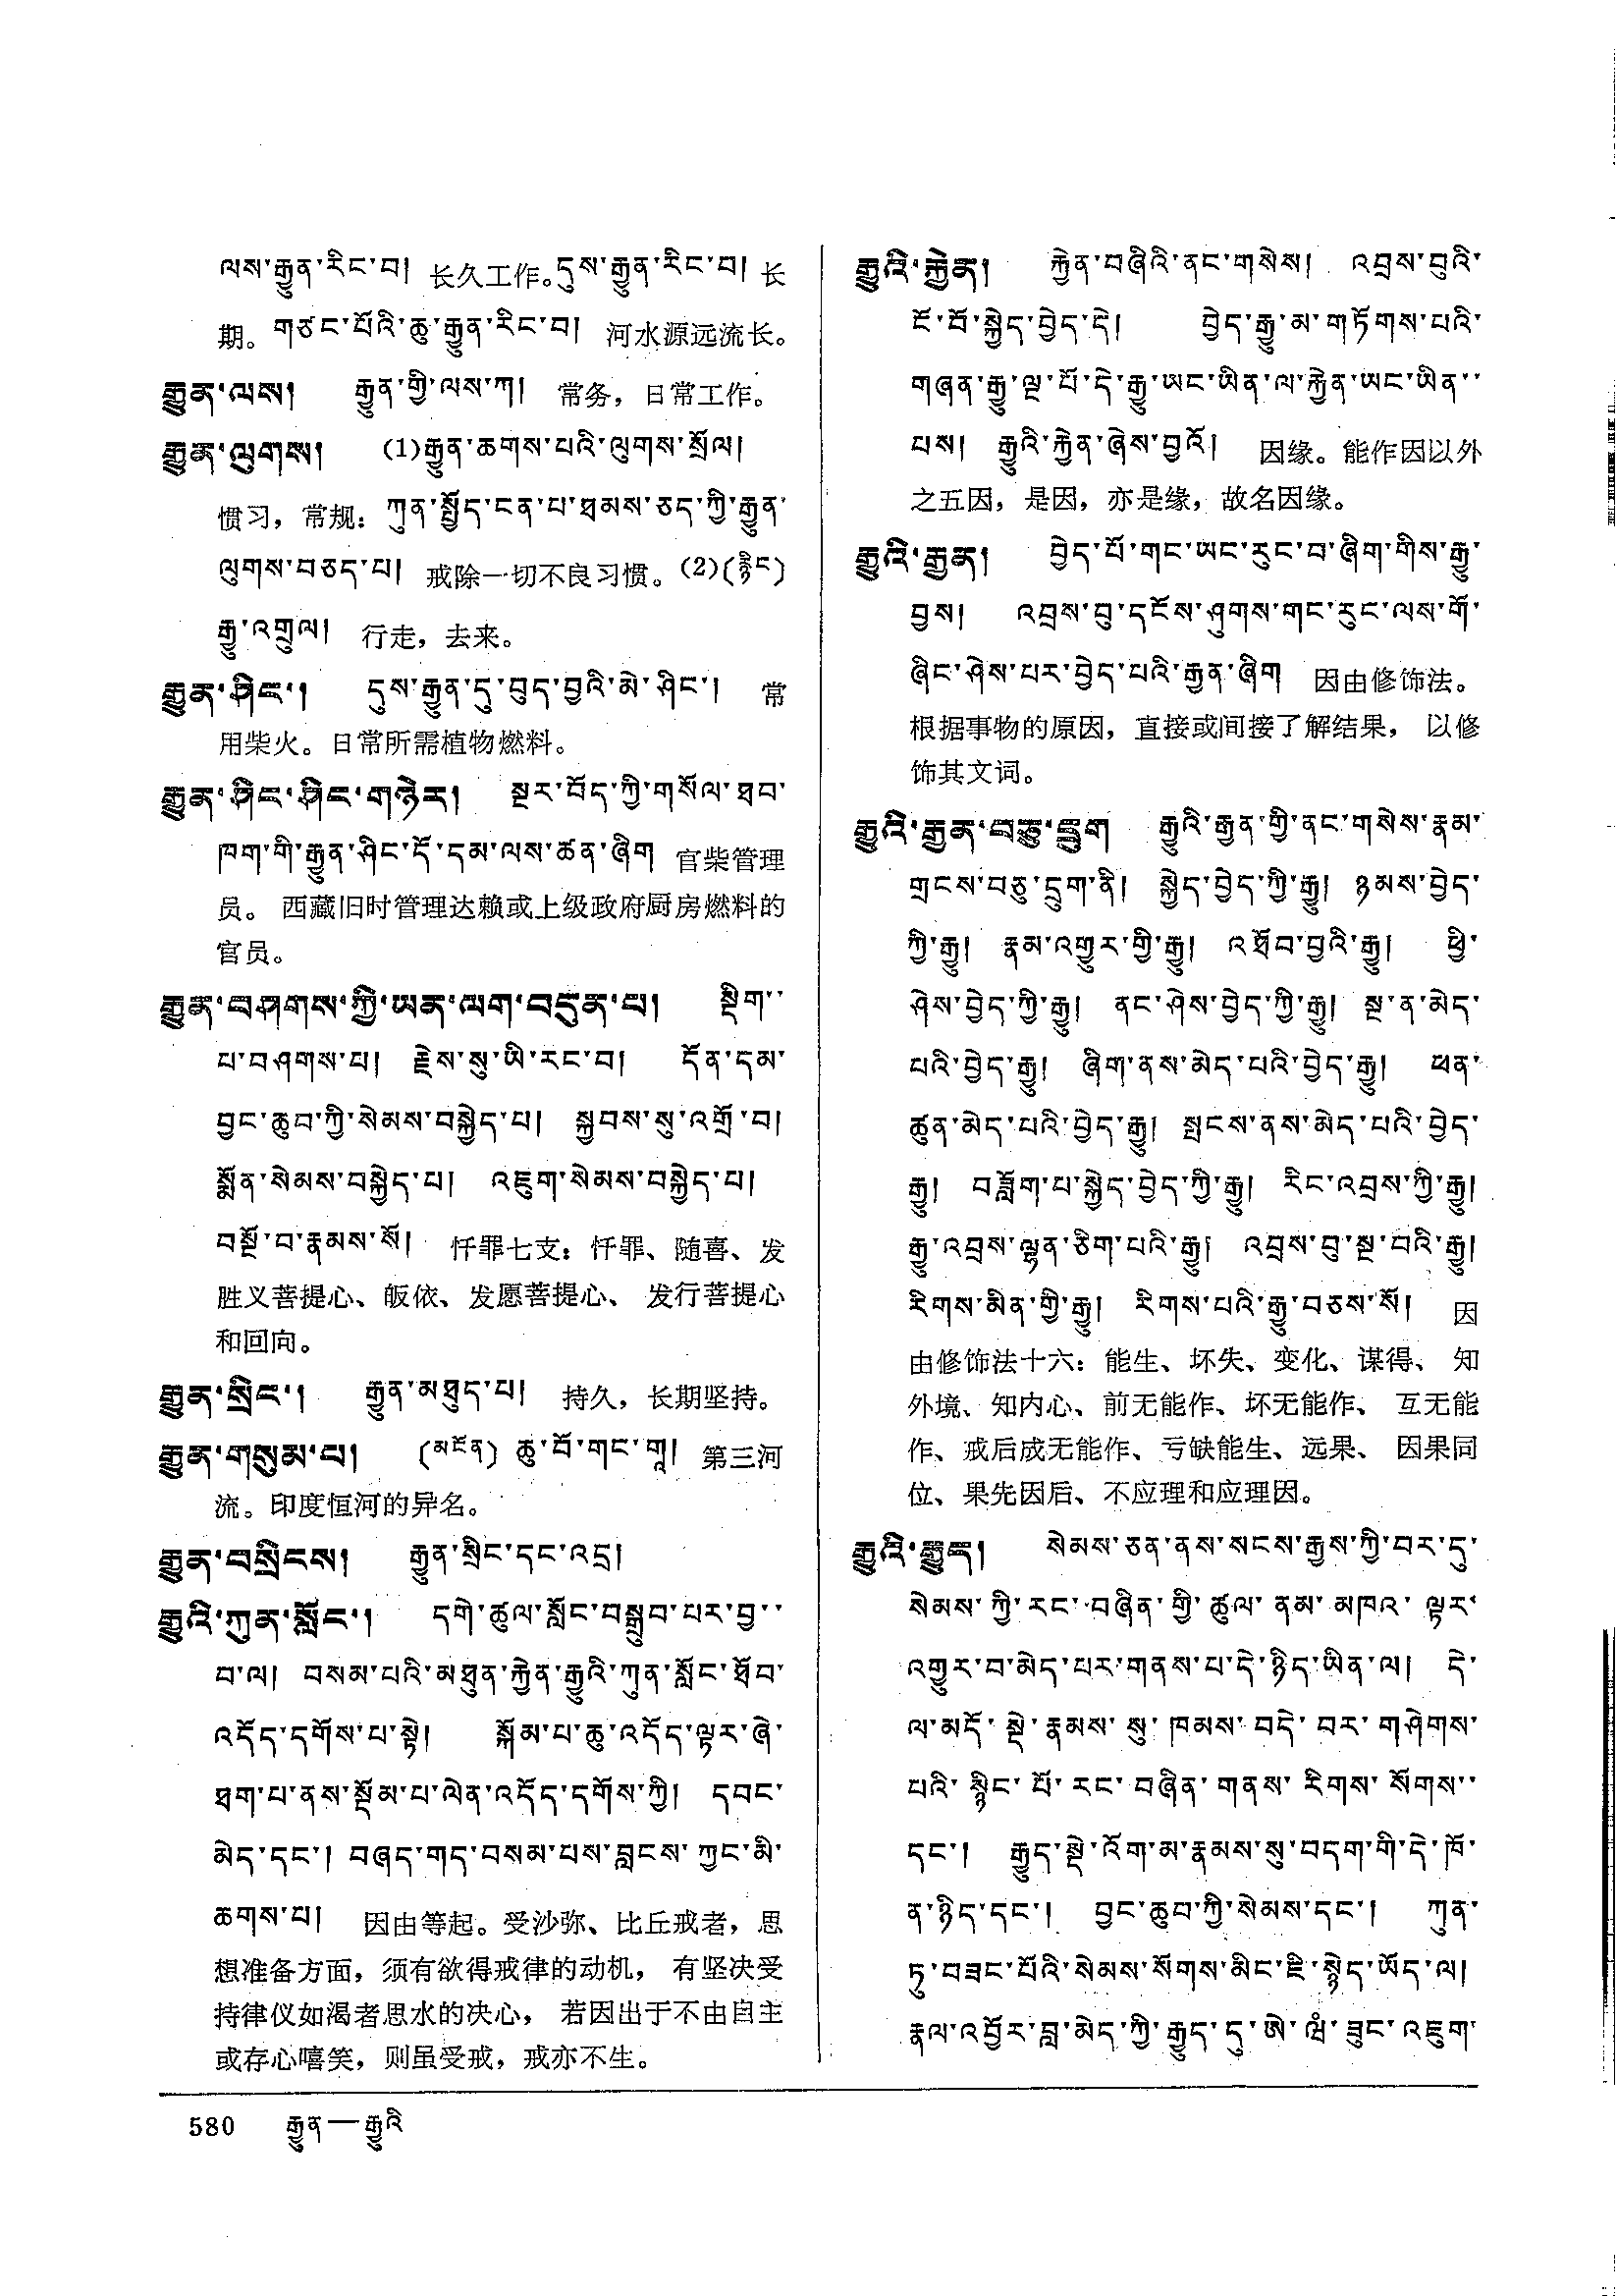 ལས་རྒྱུན་རིང་བ། 长久工作。དུས་རྒྱུན་རིང་བ། 长
期。གཙང་པོའི་ཆུ་རྒྱུན་རིང་བ། 河水源远流长。
རྒྱུན་ལས། རྒྱུན་གྱི་ལས་ཀ། 常务，日常工作。
རྒྱུན་ལུགས། (1)རྒྱུན་ཆགས་པའི་ལུགས་སྲོལ།
惯习，常规：ཀུན་སྤྱོད་ངན་པ་ཐམས་ཅད་ཀྱི་རྒྱུན་
ལུགས་བཅད་པ། 戒除一切不良习惯。(2)(རྙིང)
རྒྱུ་འགྲུལ། 行走，去来。
རྒྱུན་ཤིང་། དུས་རྒྱུན་དུ་བུད་བྱའི་མེ་ཤིང་། 常
用柴火。日常所需植物燃料。
རྒྱུན་ཤིང་ཤིང་གཉེར། སྔར་བོད་ཀྱི་གསོལ་ཐབ་
ཁག་གི་རྒྱུན་ཤིང་དོ་དམ་ལས་ཚན་ཞིག 官柴管理
员。 西藏旧时管理达赖或上级政府厨房燃料的
官员。
རྒྱུན་བཤགས་ཀྱི་ཡན་ལག་བདུན་པ། སྡིག་་
པ་བཤགས་པ། རྗེས་སུ་ཡི་རང་བ། དོན་དམ་
བྱང་ཆུབ་ཀྱི་སེམས་བསྐྱེད་པ། སྐྱབས་སུ་འགྲོ་བ།
སྨོན་སེམས་བསྐྱེད་པ། འཇུག་སེམས་བསྐྱེད་པ།
བསྔོ་བ་རྣམས་སོ། 忏罪七支：忏罪、随喜、发
胜义菩提心、皈依、发愿菩提心、 发行菩提心
和回向。
རྒྱུན་སྲིང་། རྒྱུན་མཐུད་པ། 持久，长期坚持。
རྒྱུན་གསུམ་པ། (མངོན) ཆུ་བོ་གང་གཱ། 第三河
流。印度恒河的异名。
རྒྱུན་བསྲིངས། རྒྱུན་སྲིང་དང་འདྲ།
རྒྱུའི་ཀུན་སློང་། དགེ་ཚུལ་སློང་བསྒྲུབ་པར་བྱ་་
བ་ལ། བསམ་པའི་མཐུན་རྐྱེན་རྒྱུའི་ཀུན་སློང་ཐོབ་
འདོད་དགོས་པ་སྟེ། སྐོམ་པ་ཆུ་འདོད་ལྟར་ཞེ་
ཐག་པ་ནས་སྡོམ་པ་ལེན་འདོད་དགོས་ཀྱི། དབང་
མེད་དང་། བཞད་གད་བསམ་པས་བླངས་ཀྱང་མི་
ཆགས་པ། 因由等起。受沙弥、比丘戒者，思
想准备方面，须有欲得戒律的动机， 有坚决受
持律仪如渴者思水的决心， 若因出于不由自主
或存心嘻笑，则虽受戒，戒亦不生。
རྒྱུའི་རྐྱེན། རྐྱེན་བཞིའི་ནང་གསེས། འབྲས་བུའི་
ངོ་བོ་སྐྱེད་བྱེད་དེ། བྱེད་རྒྱུ་མ་གཏོགས་པའི་
གཞན་རྒྱུ་ལྔ་པོ་དེ་རྒྱུ་ཡང་ཡིན་ལ་རྐྱེན་ཡང་ཡིན་་
པས། རྒྱུའི་རྐྱེན་ཞེས་བྱའོ། 因缘。能作因以外
之五因，是因，亦是缘，故名因缘。
རྒྱུའི་རྒྱན། བྱེད་པོ་གང་ཡང་རུང་བ་ཞིག་གིས་རྒྱུ་
བྱས། འབྲས་བུ་དངོས་ཤུགས་གང་རུང་ལས་གོ་
ཞིང་ཤེས་པར་བྱེད་པའི་རྒྱན་ཞིག 因由修饰法。
根据事物的原因，直接或间接了解结果， 以修
饰其文词。
རྒྱུའི་རྒྱན་བཅུ་དྲུག རྒྱུའི་རྒྱན་གྱི་ནང་གསེས་རྣམ་
གྲངས་བཅུ་དྲུག་ནི། སྐྱེད་བྱེད་ཀྱི་རྒྱུ། ཉམས་བྱེད་
ཀྱི་རྒྱུ། རྣམ་འགྱུར་གྱི་རྒྱུ། འཐོབ་བྱའི་རྒྱུ། ཕྱི་
ཤེས་བྱེད་ཀྱི་རྒྱུ། ནང་ཤེས་བྱེད་ཀྱི་རྒྱུ། སྔ་ན་མེད་
པའི་བྱེད་རྒྱུ། ཞིག་ནས་མེད་པའི་བྱེད་རྒྱུ། ཕན་
ཚུན་མེད་པའི་བྱེད་རྒྱུ། སྤྲངས་ནས་མེད་པའི་བྱེད་
རྒྱུ། བཟློག་པ་སྐྱེད་བྱེད་ཀྱི་རྒྱུ། རིང་འབྲས་ཀྱི་རྒྱུ།
རྒྱུ་འབྲས་ལྷན་ཅིག་པའི་རྒྱུ། འབྲས་བུ་སྔ་བའི་རྒྱུ།
རིགས་མིན་གྱི་རྒྱུ། རིགས་པའི་རྒྱུ་བཅས་སོ། 因
由修饰法十六：能生、坏失、变化、谋得、 知
外境、知内心、前无能作、坏无能作、 互无能
作、戒后成无能作、亏缺能生、远果、 因果同
位、果先因后、不应理和应理因。
རྒྱུའི་རྒྱུད། སེམས་ཅན་ནས་སངས་རྒྱས་ཀྱི་བར་དུ་
སེམས་ཀྱི་རང་བཞིན་གྱི་ཚུལ་ནམ་མཁའ་ལྟར་
འགྱུར་བ་མེད་པར་གནས་པ་དེ་ཉིད་ཡིན་ལ། དེ་
ལ་མདོ་སྡེ་རྣམས་སུ་ཁམས་བདེ་བར་གཤེགས་
པའི་སྙིང་པོ་རང་བཞིན་གནས་རིགས་སོགས་་
དང་། རྒྱུད་སྡེ་འོག་མ་རྣམས་སུ་བདག་གི་དེ་ཁོ་
ན་ཉིད་དང་། བྱང་ཆུབ་ཀྱི་སེམས་དང་། ཀུན་
ཏུ་བཟང་པོའི་སེམས་སོགས་མིང་ཇི་སྙེད་ཡོད་ལ།
རྣལ་འབྱོར་བླ་མེད་ཀྱི་རྒྱུད་དུ་ཨེ་ཝཾ་ཟུང་འཇུག་
580 རྒྱུན—རྒྱུའི